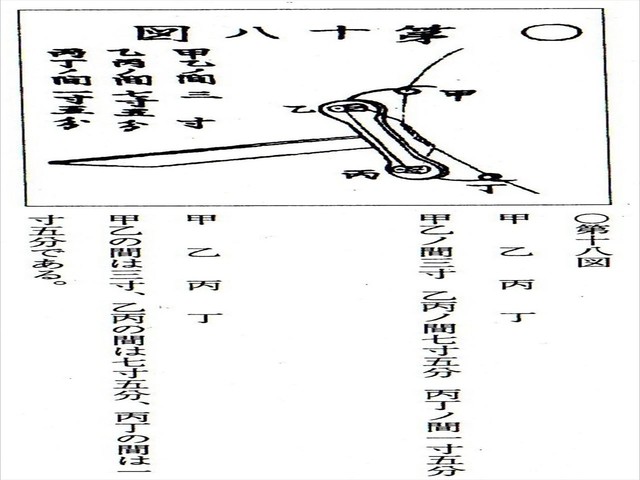 ○第十八図
甲乙ノ間三寸
乙丙ノ間七寸五分
丙丁ノ間一寸五分
甲
乙
丙
丁
○第十八図
甲 乙 丙 丁
甲乙ノ間三寸 乙丙ノ間七寸五分 丙丁ノ間一寸五分
甲 乙 丙 丁
甲乙の間は三寸、乙丙の間は七寸五分、丙丁の間は一
寸五分である。